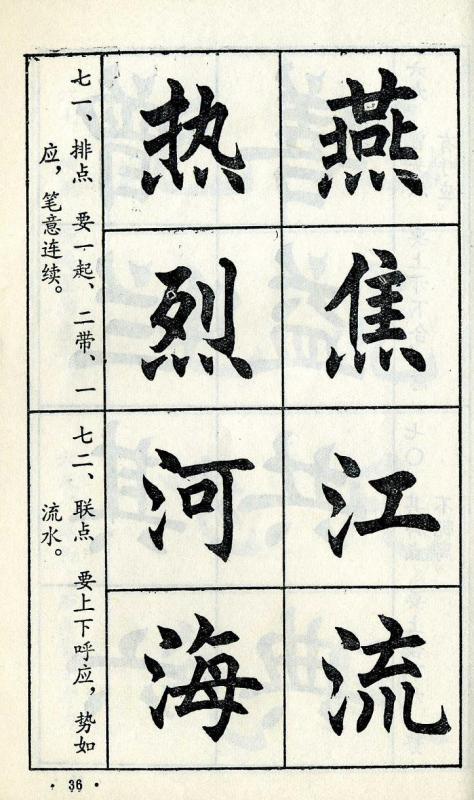 燕
焦
热
烈
七一、排点 要一起、二带、一
应，笔意连续。
江
流
河
海
七二、联点 要上下呼应，势如
流水。
· 36 ·